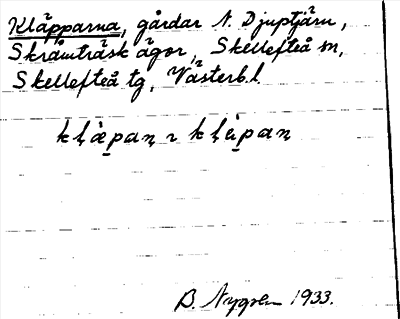 Kläpparna, gårdar N. Djuptjärn,
Skråmträsk ägor, Skellefteå sn,
Skellefteå tg, Västerb. l.
B. Nygren 1933.